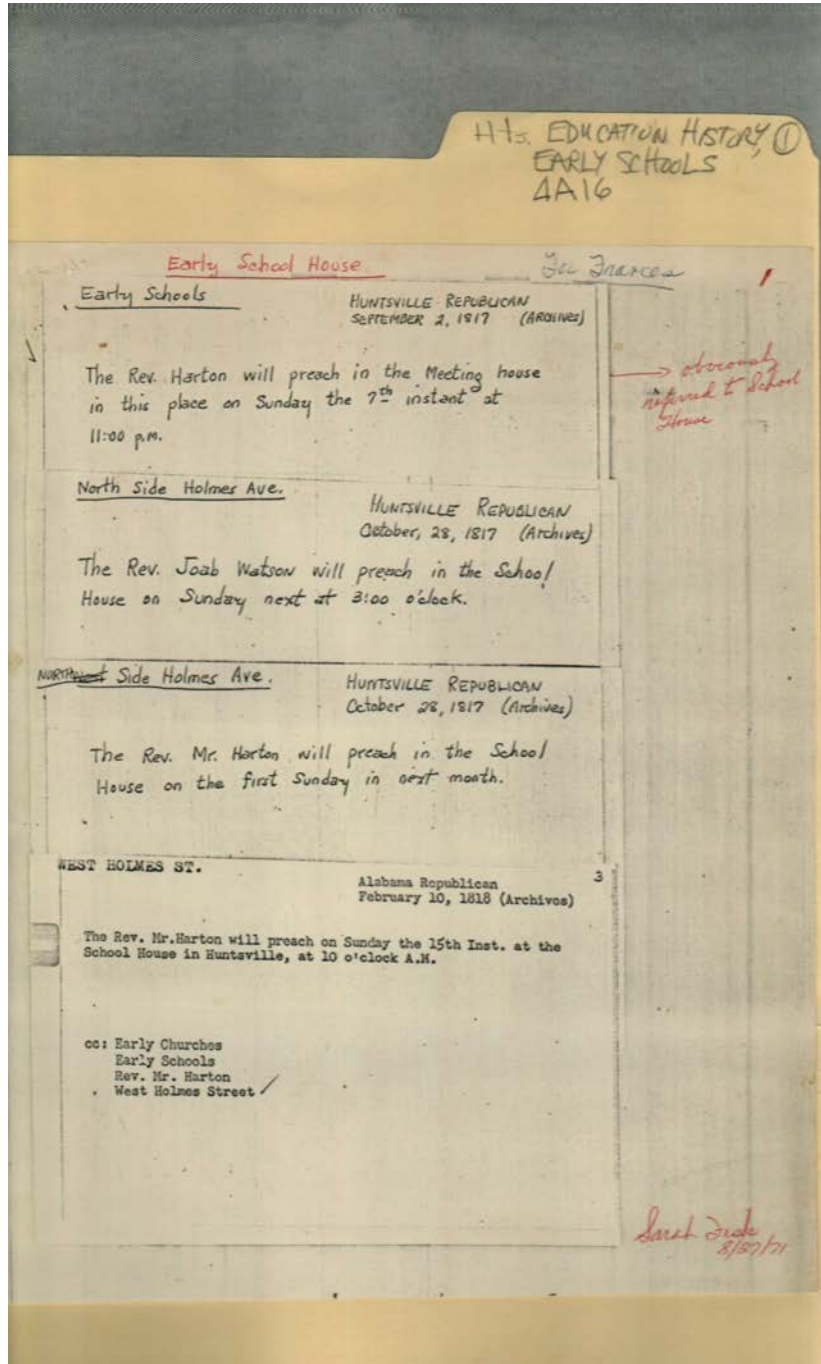 Hts. EDUCATION HISTORY, ①
EARLY SCHOOLS
4A16
Early School House
For Frances
1
Early Schools
HUNTSVILLE REPUBLICAN
SEPTEMBER 2, 1817 (ARCHIVES)
The Rev. Harton will preach in the Meeting house
in this place on Sunday the 7th instant at
11:00 p.m.
→ obviously
referred to School
House
North Side Holmes Ave.
HUNTSVILLE REPUBLICAN
October, 28, 1817 (Archives)
The Rev. Joab Watson will preach in the School
House on Sunday next at 3:00 o'clock.
NORTH Side Holmes Ave.
HUNTSVILLE REPUBLICAN
October 28, 1817 (Archives)
The Rev. Mr. Harton will preach in the School
House on the first Sunday in next month.
WEST HOLMES ST.
3
Alabama Republican
February 10, 1818 (Archives)
The Rev. Mr.Harton will preach on Sunday the 15th Inst. at the
School House in Huntsville, at 10 o'clock A.M.
cc: Early Churches
Early Schools
Rev. Mr. Harton
West Holmes Street
Sarah Fisk